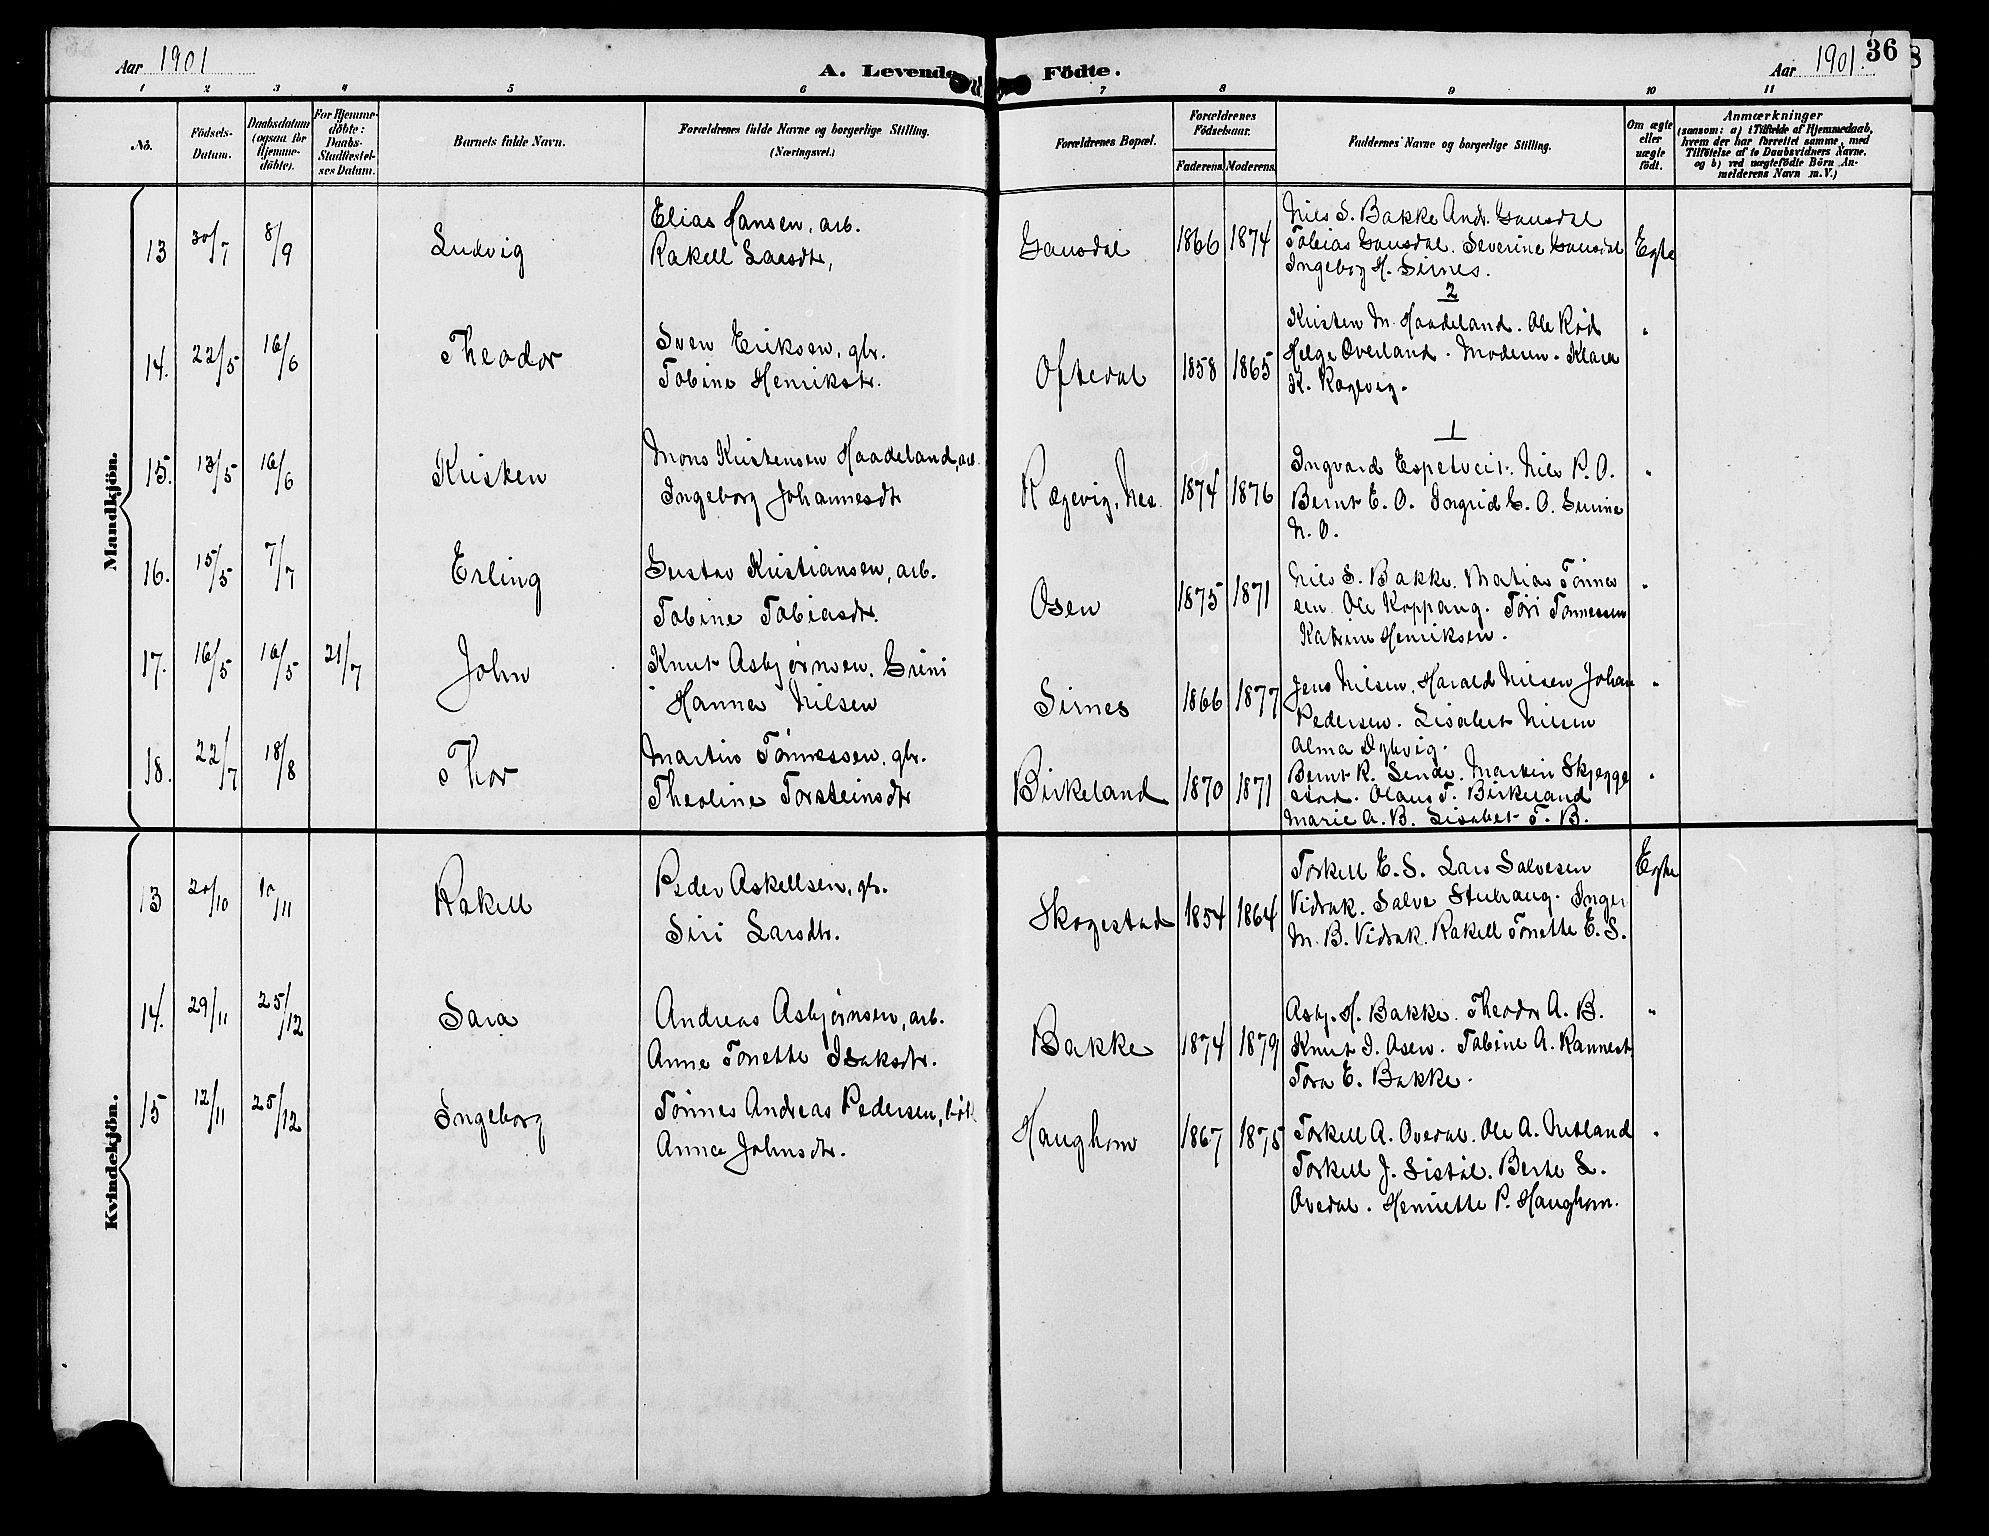 Aar 1901
A. Levende
Födte.
Aar 1901.
36
8
1 2 3 4 5 6 7 8 9 10 11
No.
Födsels-
Datum.
Daabsdatum
(ogsaa for
Hjemme-
döbte).
For Hjemme-
döbte:
Daabs-
Stadfæstel-
ses Datum.
Barnets fulde Navn.
Forældrenes fulde Navne og borgerlige Stilling.
(Næringsvei.)
Forældrenes Bopæl.
Forældrenes
Födselsaar.
Faderens. Moderens.
Faddernes Navne og borgerlige Stilling.
Om ægte
eller
uægte
födt.
Anmærkninger
(saasom: a) i Tilfælde af Hjemmedaab,
hvem der har forrettet samme, med
Tilföielse af to Daabsvidners Navne.
og b) ved uægtefödte Börn An-
melderens Navn m. V.)
Mandkjön.
13 30/7 8/9 Ludvig
Elias Hansen, arb.
Rakell Larsdtr,
Gausdal 1866 1874
Nils S. Bakke Andr. Gausdal
Tobias Gausdal. Severine Gausdal
Ingeborg H. Sirnes.
Egte
14. 22/5 16/6 Theodor
Sven Eriksen, gbr.
Tobine Henriksdtr.
Oftedal 1858 1865
2
Kristen M. Haadeland. Ole Rød
Helge Overland. Moderen. Klara
K. Rægevig.
"
15. 13/5 16/6 Kristen
Mons Kristensen Haadeland, arb.
Ingeborg Johannesdtr
Rægevig, Nes. 1874 1876
1
Ingvard Espetveit. Nils P. O.
Bernt E. O. Ingrid E. O. Serine
N. O.
"
16. 15/5 7/7 Erling
Gustav Kristiansen, arb.
Tobine Tobiasdtr.
Osen 1875 1871
Nils S. Bakke. Matias Tønnes
sen. Ole Koppang. Tøri Tønnessen
Katrine Henriksen.
"
17. 16/5 16/5 21/7 John
Knut Asbjørnsen, Grini
Hanna Nilsen
Sirnes 1866 1877
Jens Nilsen, Harald Nilsen Johan
Pedersen. Lisabet Nilsen
Alma Dybvig.
"
18. 22/7 18/8 Thor
Martin Tönnessen, gbr.
Theoline Torsteinsdtr
Birkeland 1870 1871
Bernt R. Sende. Martin Skjegge
stad. Olaus T. Birkeland
Marie A. B. Lisabet T. B.
"
Kvindekjön.
13 20/10 10/11 Rakell
Peder Askellsen, gbr.
Siri Larsdtr.
Skogestad 1854 1864
Torkell E. S. Lars Salvesen
Vidrak. Salve Stubraug. Inger
M. B. Vidrak. Rakell Tonette E. S.
Egte
14. 29/11 25/12 Sara
Andreas Asbjørnsen, arb.
Anne Tonette Isaksdtr.
Bakke 1874 1879
Asbj. H. Bakke. Theodor A. B.
Knut I. Osen. Tobine A. Rannest
Tora E. Bakke.
"
15 12/11 25/12 Ingeborg
Tönnes Andreas Pedersen,
Anna Johnsdtr.
Haughom 1867 1875
Torkell A. Ovedal. Ole A. Netland
Torkell J. Sistil. Berte L.
Ovedal. Henriette P. Haughom.
"